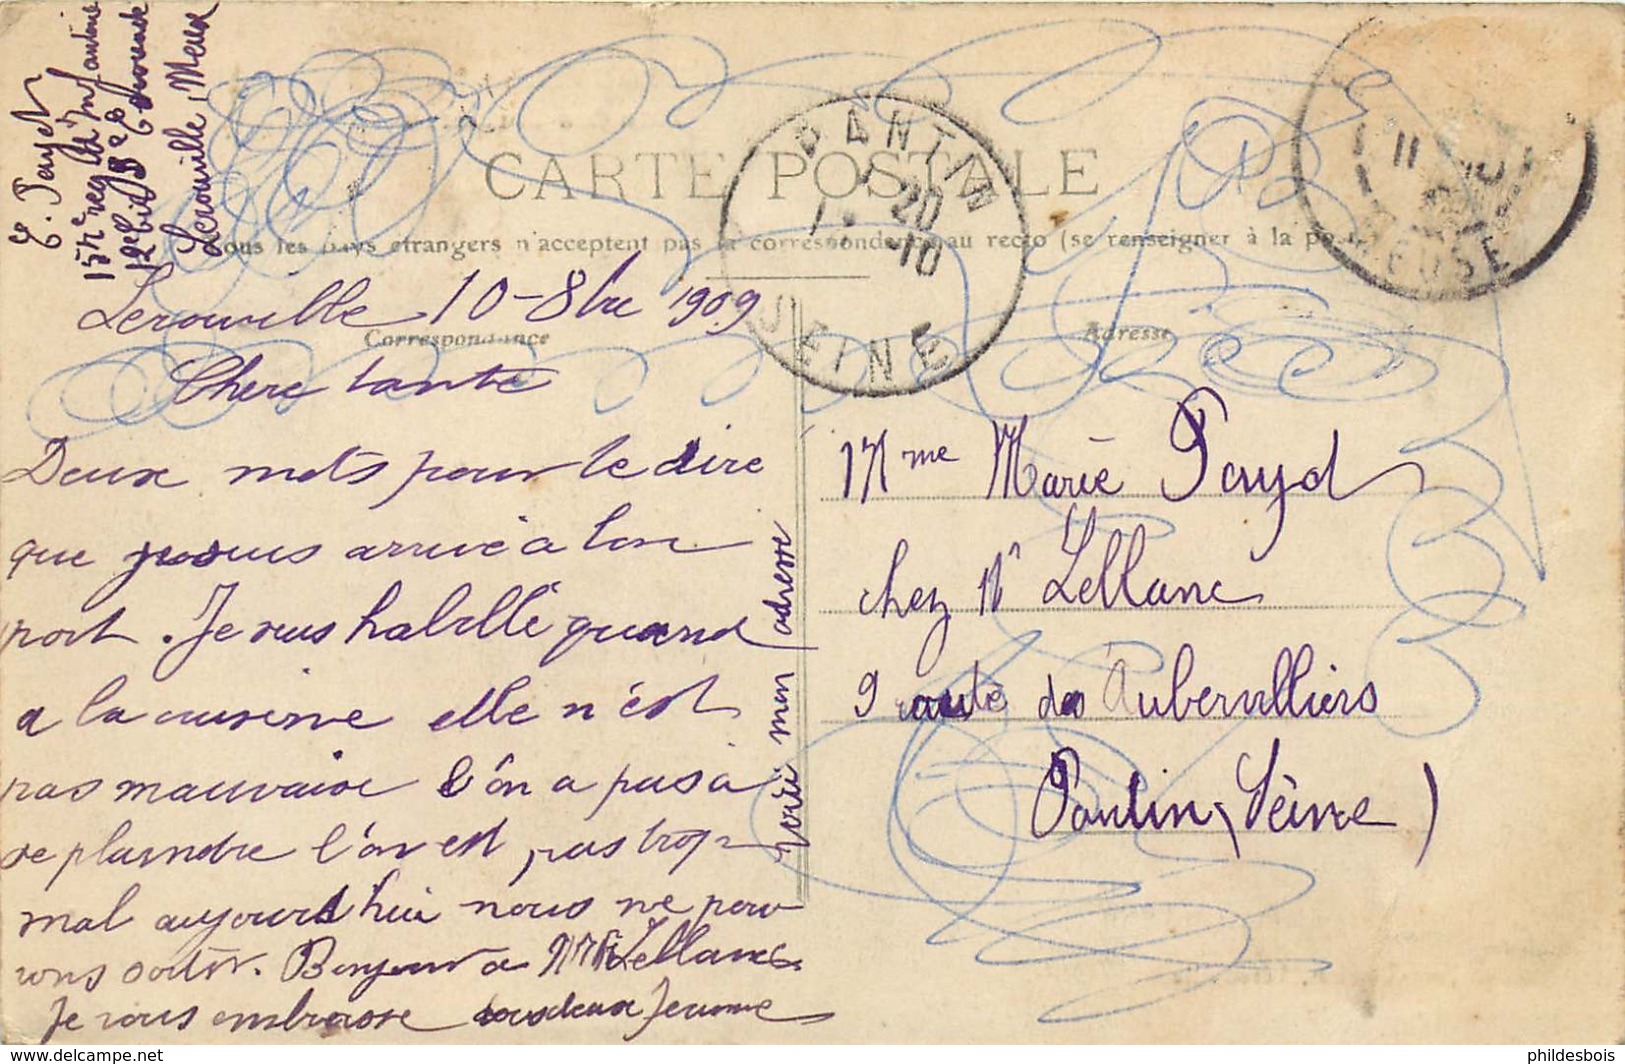 E. Payet
154e reg d'Infanterie
12e Cie
Lerouville, Meuse
CARTE POSTALE
Tous les pays étrangers n'acceptent pas la correspondance au recto (se renseigner à la poste)
PANTIN
20
10
SEINE
11
MEUSE
Lerouville 10-8bre 1909
Correspondance
Adresse
Chere tante
Deux mots pour te dire
que je suis arrivé a bon
port. Je suis habillé quand
a la cuisine elle n'est
pas mauvaise l'on a pas a
se plaindre l'on est pas trop
mal aujourd'hui nous ne pouv
rons sortir. Bonjour a Mr Leblanc
Je vous embrasse tous deux
voici mon adresse
Mme Marie Payet
chez Mr Leblanc
9 route de Aubervilliers
Pantin (Seine)
phildesbois